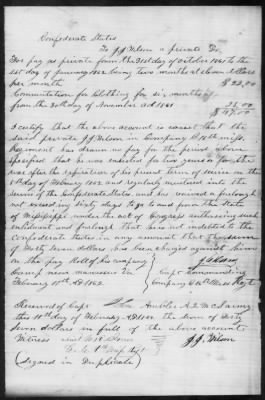 Confederate States
To J J Wilson a private Dr.
For pay as private from the 31st day of October 1861 to the
1st day of January 1862 being two months at eleven dollars
per month $22,00
Commutation for Clothing for six months
from the 30th day of November AD 1861 25,00
$47,00
I certify that the above account is correct that the
said private J J Wilson in Company 16th Miss
Regiment has drawn no pay for the period above
specified that he was enlisted for two years or the
war after the expiration of his present term of service on the
day of February 1862 and regularly mustered into the
service of the Confederate States and has received a furlough
not exceeding sixty days to go to and from the State
of Mississippi under the act of Congress authorizing such
enlistment and furlough that he is not indebted to the
Confederate States in any amount that the sum
of forty seven dollars has been charged against him
on the pay Roll of his company
Camp near Manassas Va Capt Commanding
February 11th AD 1862 Company 16th Miss Regt
Received of Capt
this 11th day of February AD 1862 the sum of forty
seven dollars in full of the above account
Witness J J Wilson
(Signed in Duplicate)